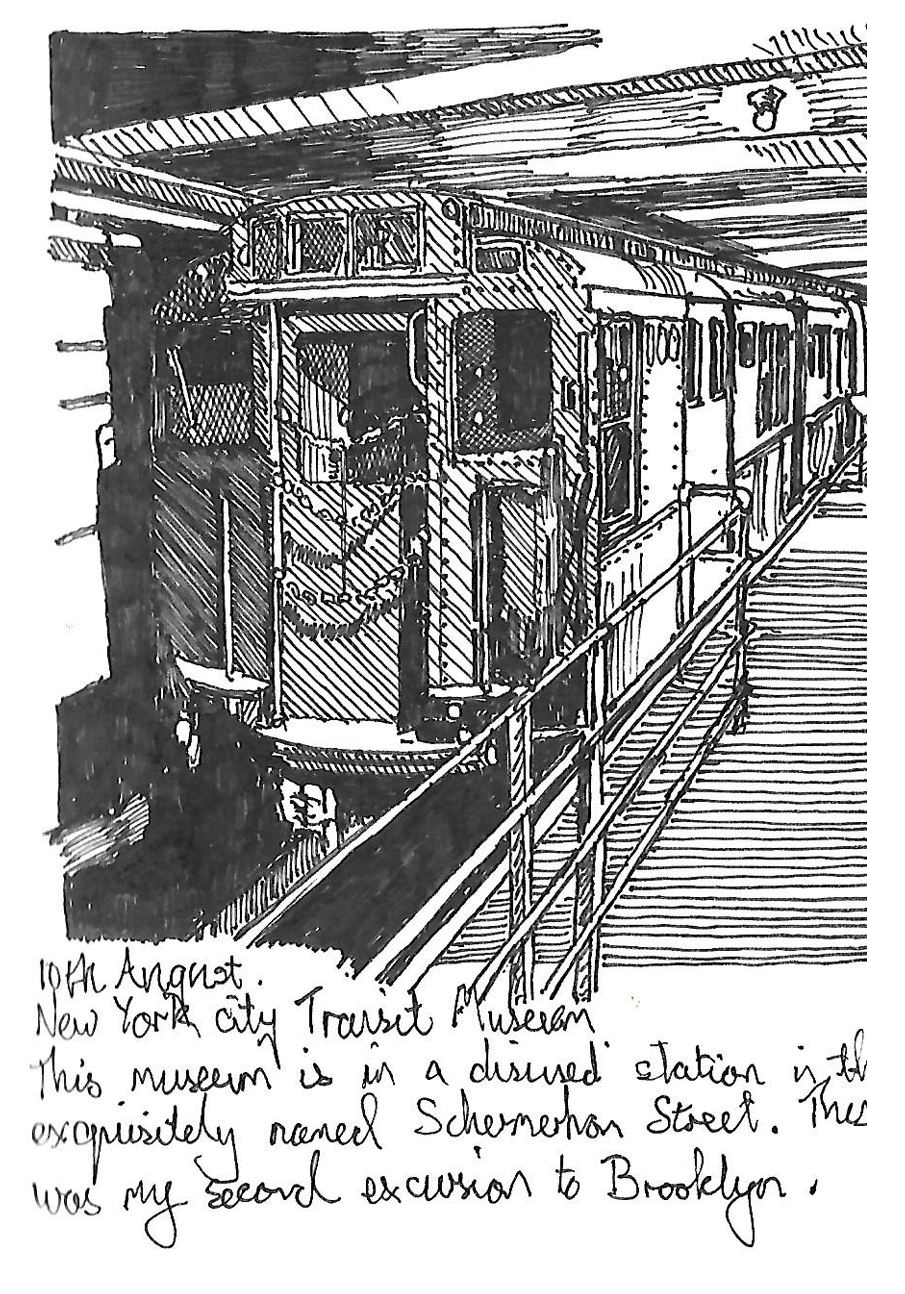 10th August.
New York city Transit Museum
This museum is in a disused station in th
exquisitely named Schermerhon Street. This
was my second excursion to Brooklyn.